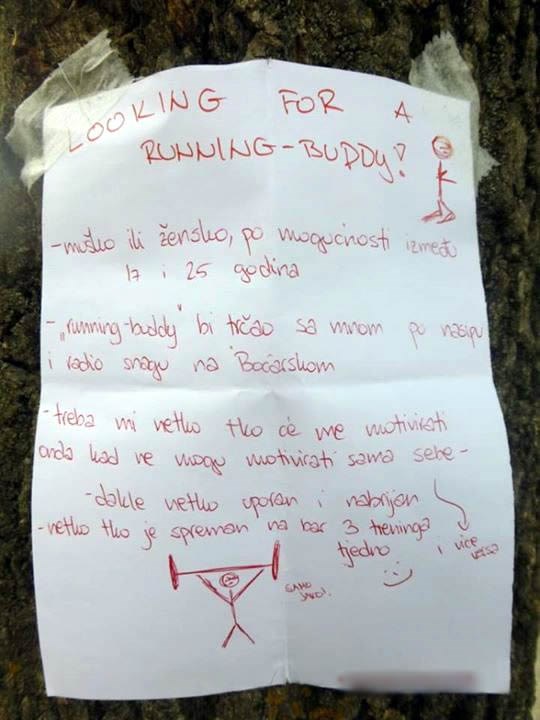 LOOKING FOR A
RUNNING-BUDDY!
- muško ili žensko, po mogućnosti između
17 i 25 godina
- „running-buddy" bi trčao sa mnom po nasipu
i radio snagu na Boćarskom
- treba mi netko tko će me motivirati
onda kad ne mogu motivirati sama sebe -
- dakle netko uporan i nabrijan
- netko tko je spreman na bar 3 treninga
tjedno
i vice
versa
SAMO
JAKO!